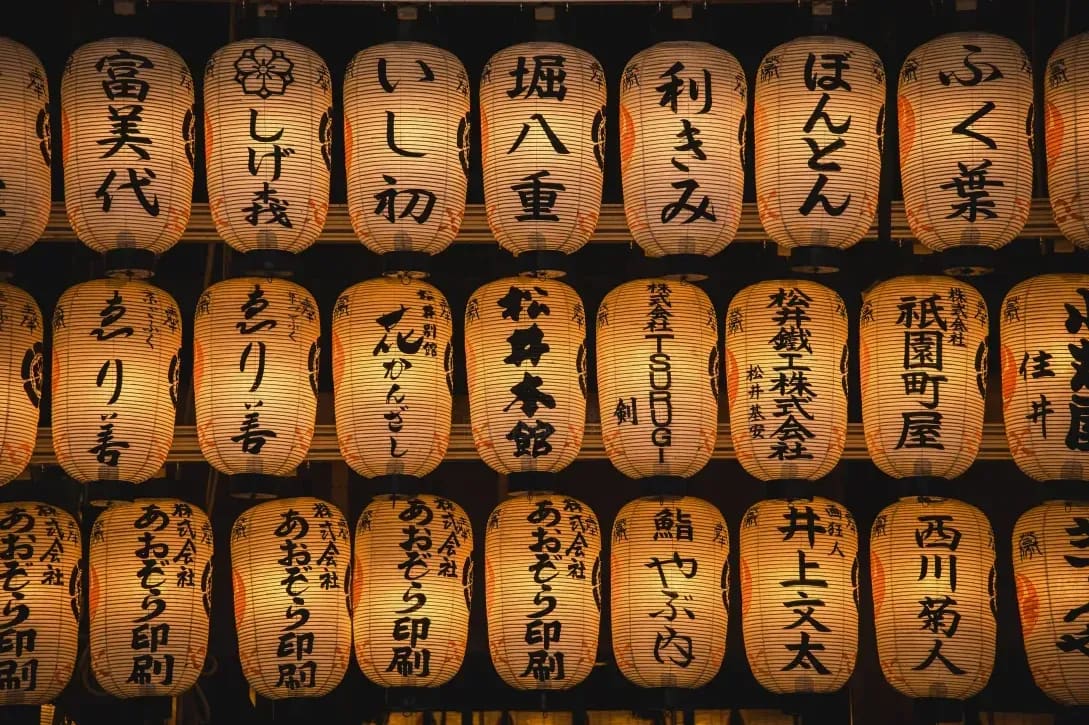 富美代
しげ森
いし初
堀八重
利きみ
ぼんとん
ふく葉
ゑり善
ゑり善
松井別館
花かんざし
松井本館
株式会社
TSURUGI
剣
松井鐵工株式会社
松井基安
株式会社
祇園町屋
住井
株式会社
あおぞら印刷
株式会社
あおぞら印刷
株式会社
あおぞら印刷
株式会社
あおぞら印刷
株式会社
あおぞら印刷
鮨やぶ内
画狂人
井上文太
西川菊人